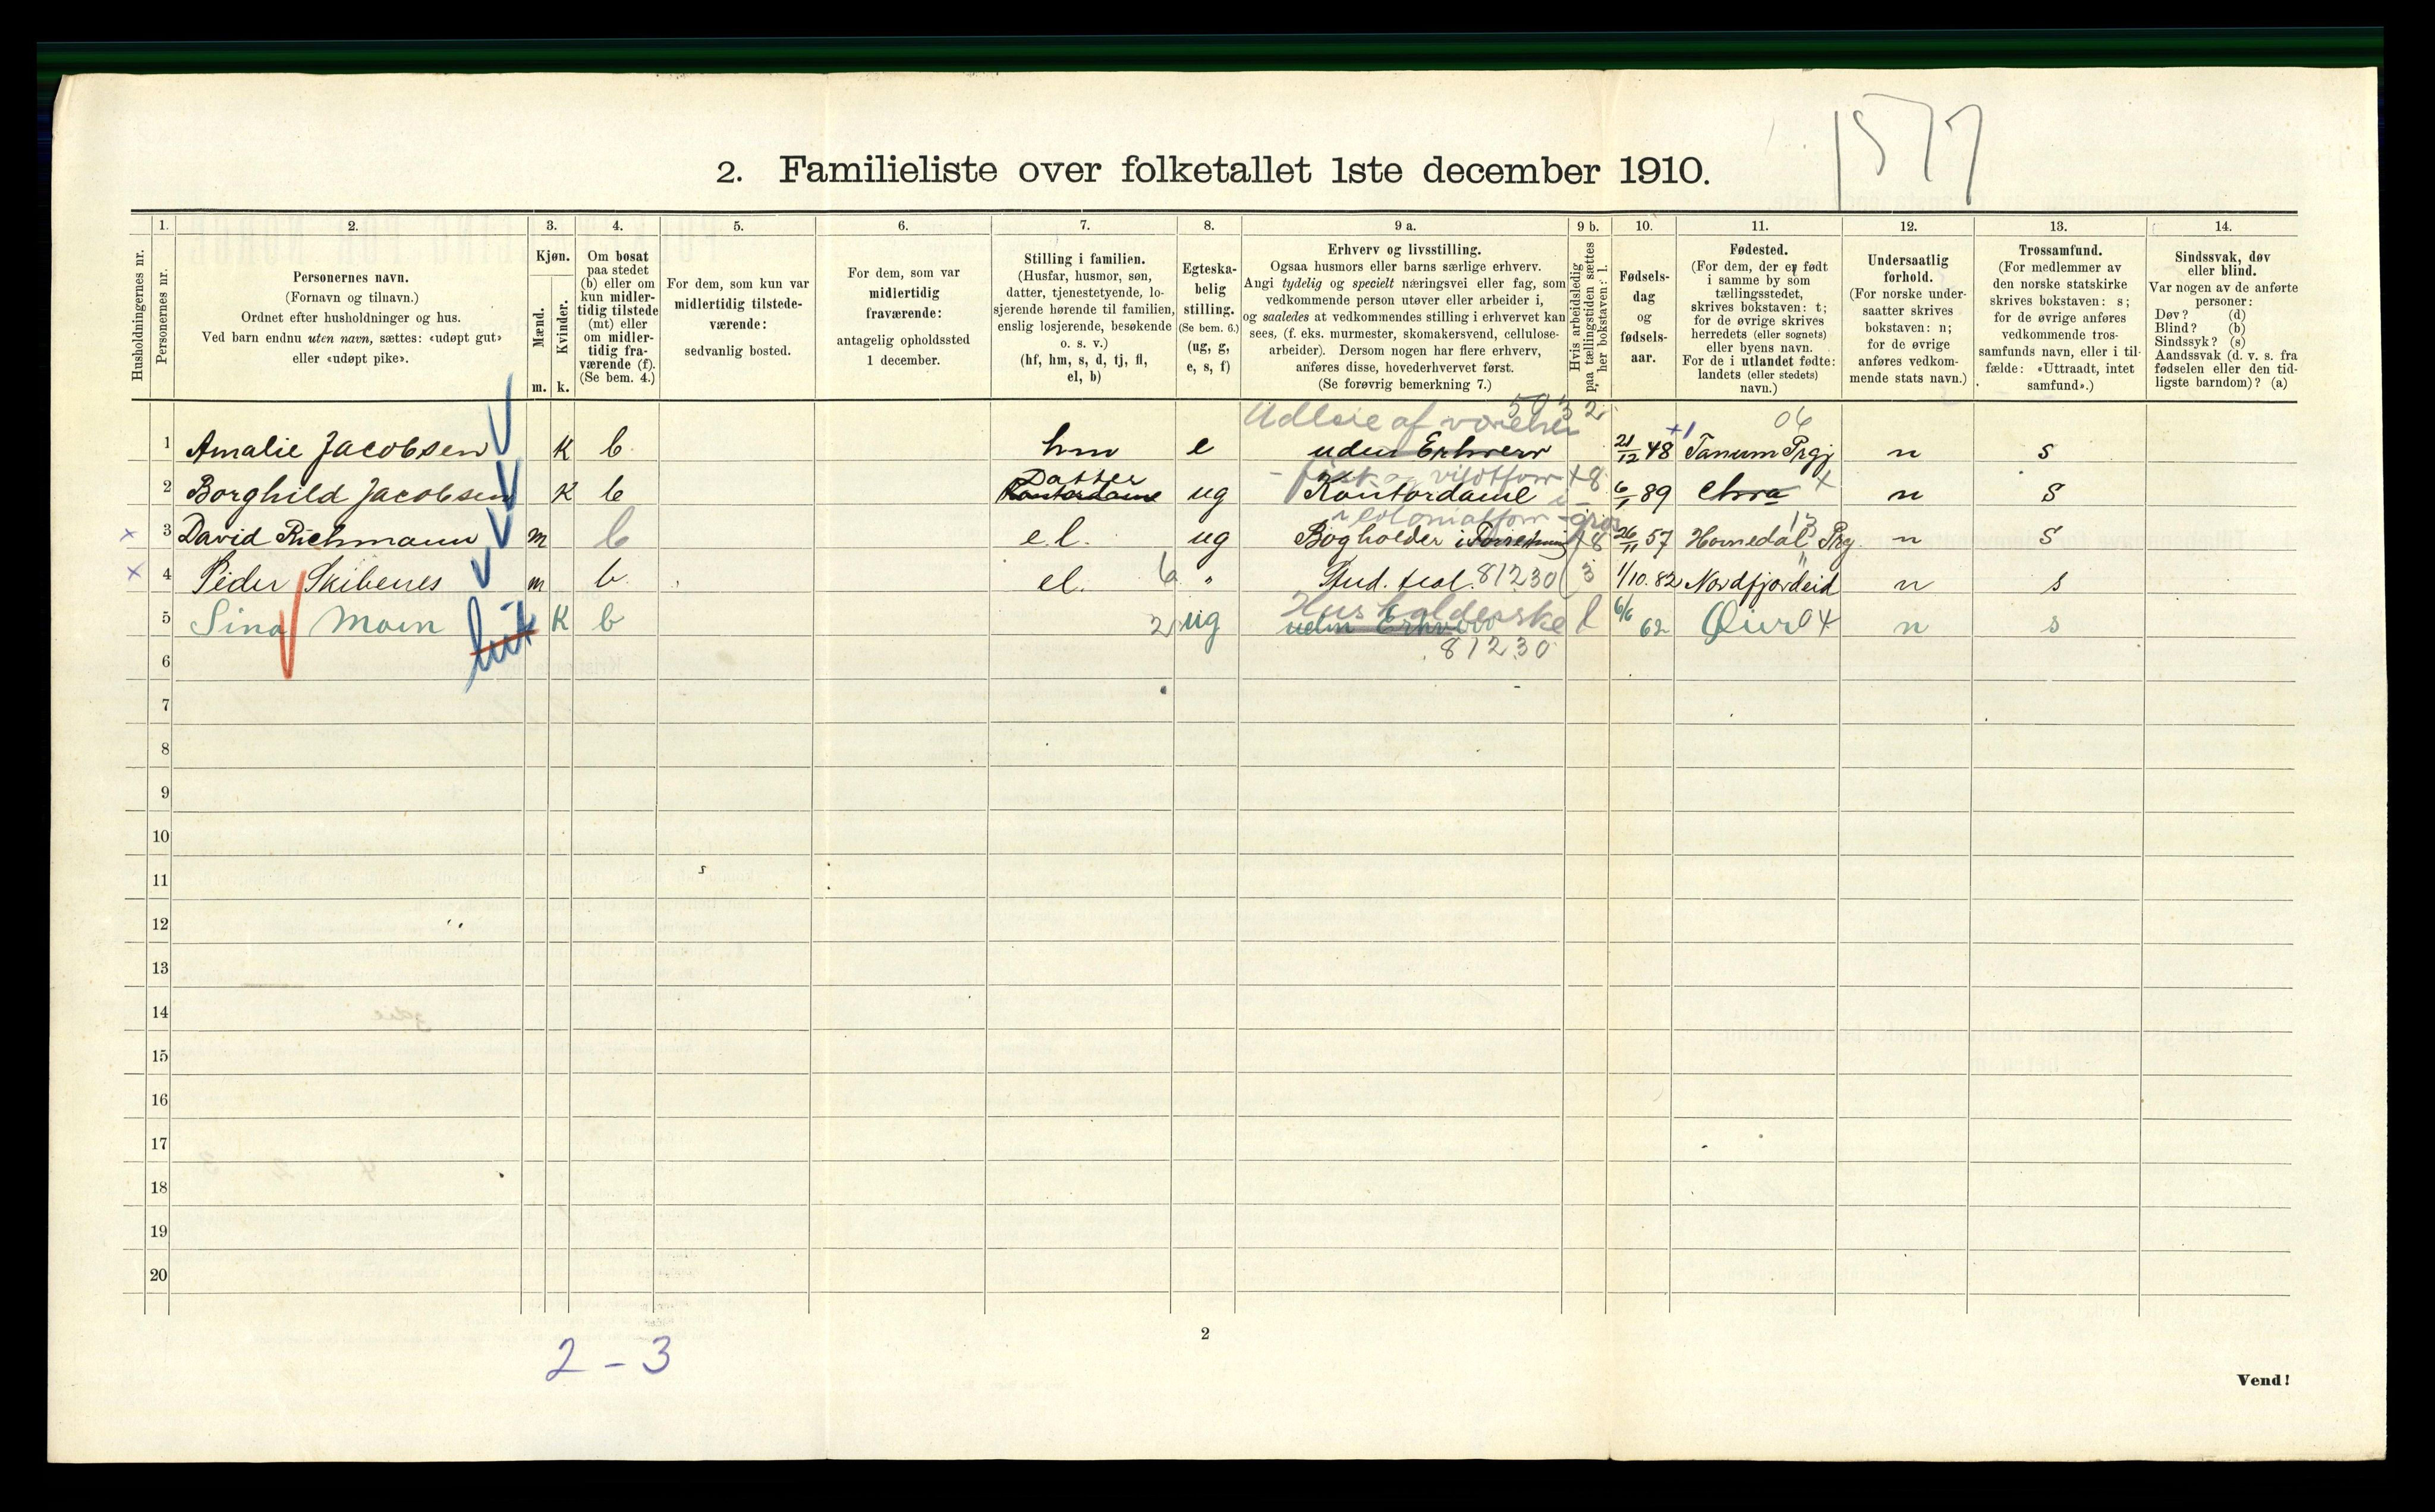 1577
2. Familieliste over folketallet 1ste december 1910.
1. 2. 3. 4. 5. 6. 7. 8. 9 a. 9 b. 10. 11. 12. 13. 14.
Husholdningernes nr.
Personernes nr.
Personernes navn.
(Fornavn og tilnavn.)
Ordnet efter husholdninger og hus.
Ved barn endnu uten navn, sættes: «udøpt gut»
eller «udøpt pike».
Kjøn.
Mænd.
Kvinder.
m. k.
Om bosat
paa stedet
(b) eller om
kun midler-
tidig tilstede
(mt) eller
om midler-
tidig fra-
værende (f).
(Se bem. 4.)
For dem, som kun var
midlertidig tilstede-
værende:
sedvanlig bosted.
For dem, som var
midlertidig
fraværende:
antagelig opholdssted
1 december.
Stilling i familien.
(Husfar, husmor, søn,
datter, tjenestetyende, lo-
sjerende hørende til familien,
enslig losjerende, besøkende
o. s. v.)
(hf, hm, s, d, tj, fl,
el, b)
Egteska-
belig
stilling.
(Se bem. 6.)
(ug, g,
e, s, f)
Erhverv og livsstilling.
Ogsaa husmors eller barns særlige erhverv.
Angi tydelig og specielt næringsvei eller fag, som
vedkommende person utøver eller arbeider i,
og saaledes at vedkommendes stilling i erhvervet kan
sees, (f. eks. murmester, skomakersvend, cellulose-
arbeider). Dersom nogen har flere erhverv,
anføres disse, hovederhvervet først.
(Se forøvrig bemerkning 7.)
Hvis arbeidsledig
paa tællingstiden sættes
her bokstaven: l.
Fødsels-
dag
og
fødsels-
aar.
Fødested.
(For dem, der er født
i samme by som
tællingsstedet,
skrives bokstaven: t;
for de øvrige skrives
herredets (eller sognets)
eller byens navn.
For de i utlandet fødte:
landets (eller stedets)
navn.)
Undersaatlig
forhold.
(For norske under-
saatter skrives
bokstaven: n;
for de øvrige
anføres vedkom-
mende stats navn.)
Trossamfund.
(For medlemmer av
den norske statskirke
skrives bokstaven: s;
for de øvrige anføres
vedkommende tros-
samfunds navn, eller i til-
fælde: «Uttraadt, intet
samfund».)
Sindssvak, døv
eller blind.
Var nogen av de anførte
personer:
Døv? (d)
Blind? (b)
Sindssyk? (s)
Aandssvak (d. v. s. fra
fødselen eller den tid-
ligste barndom)? (a)
Udleie af værelser 06
1 Amalie Jacobsen K b hm e uden Erhverv 21/12 48 Tanum Prgj n s
Datter
2 Borghild Jacobsen K b Kontordame ug Kontordame 6/1 89 Chra n s
3 David Richmann m b e.l. ug Bogholder i 26/11 57 Homedal Prg n s
4 Peder Skibenes m b. el. " Stud. real. 81230 3 1/10.82 Nordfjordeid n s
Husholderske
5 Sina Moen K b ug uden Erhverv l 6/6 62 04 n s
6 81230
7
8
9
10
11
12
13
14
15
16
17
18
19
20
2 - 3
2
Vend!